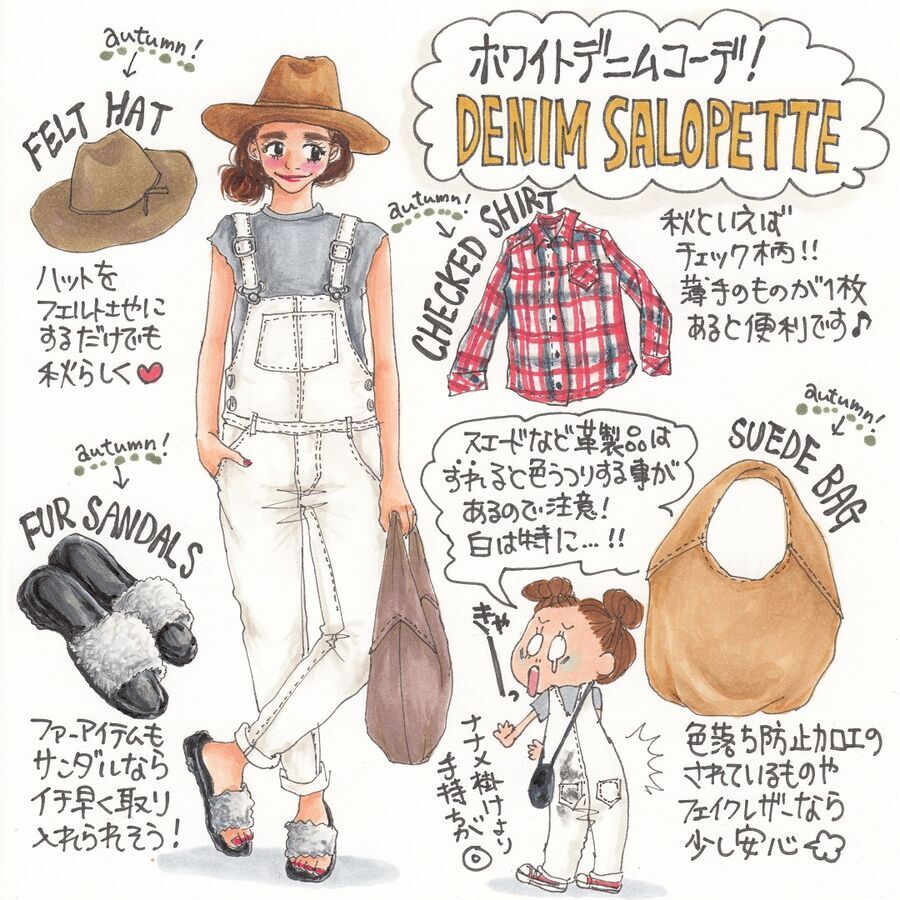 ホワイトデニムコーデ!
DENIM SALOPETTE
autumn!
FELT HAT
ハットを
フェルト生地に
するだけでも
秋らしく
autumn!
CHECKED SHIRT
秋といえば
チェック柄!!
薄手のものが1枚
あると便利です♪
autumn!
FUR SANDALS
ファーアイテムも
サンダルなら
イチ早く取り
入れられそう!
autumn!
SUEDE BAG
スエードなど革製品は
すれると色うつりする事が
あるので注意!
白は特に…!!
きゃーっ
ナナメ掛けより
手持ちが◎
色落ち防止加工の
されているものや
フェイクレザーなら
少し安心